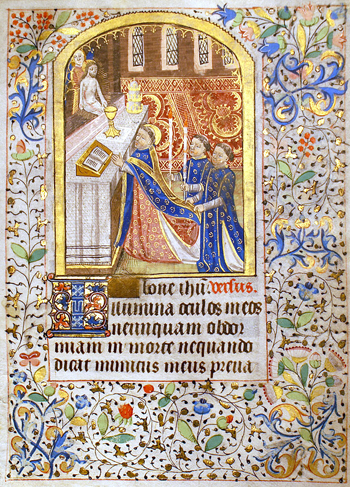 O bone ihu versus.
Illumina oculos meos
neunquam obdor
miam in morte nequando
dicat inimicus meus preua